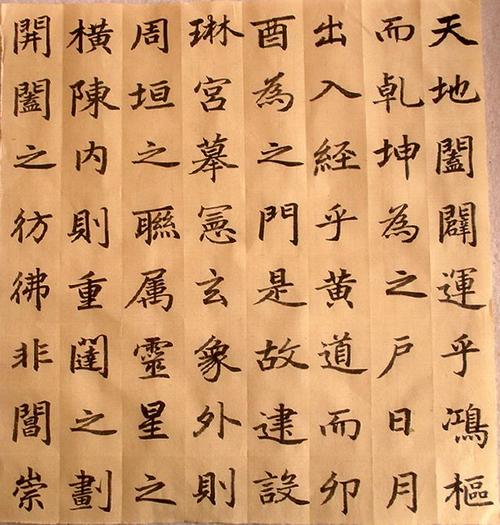 天地闔闢運乎鴻樞
而乹坤為之户日月
出入経乎黄道而卯
酉為之門是故建設
琳宮摹憲玄象外則
周垣之聯属靈星之
横陳内則重闥之劃
開闔之彷彿非閶崇